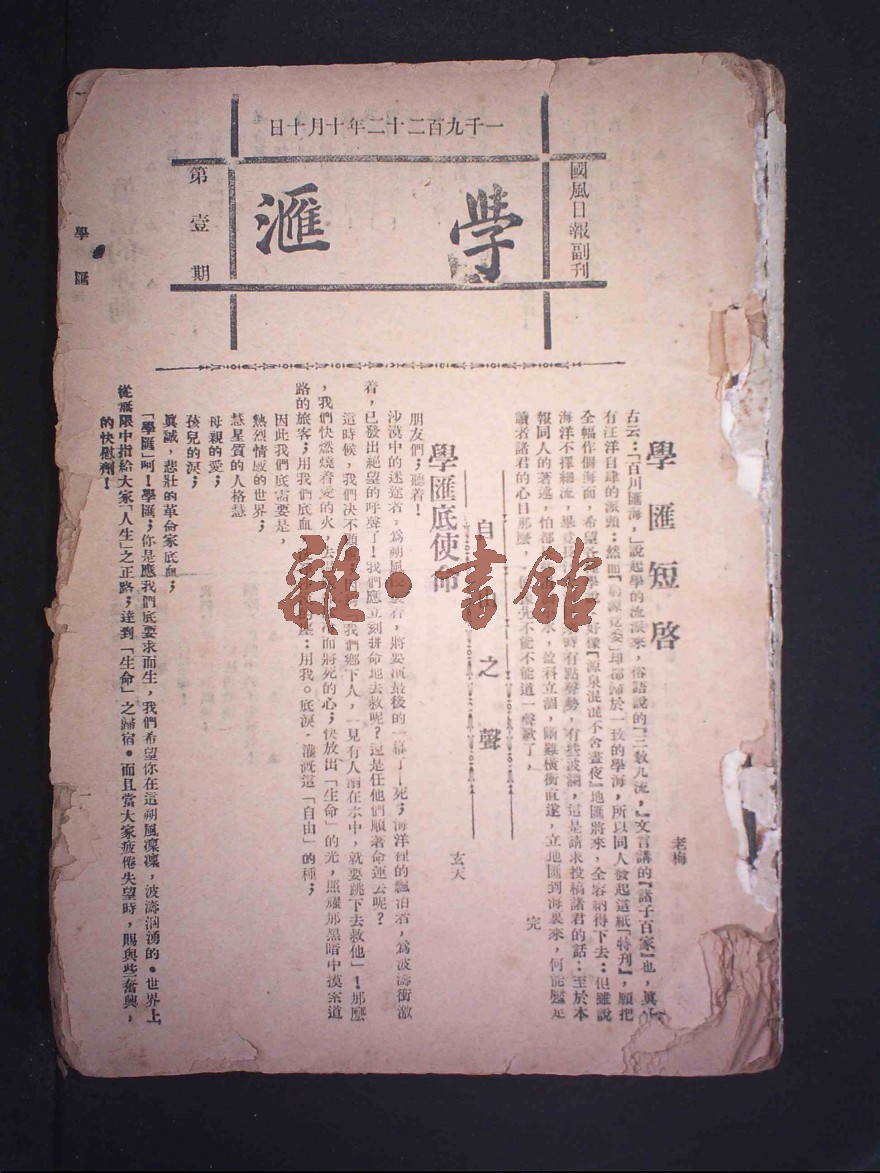 一千九百二十二年十月十日
國風日報副刊
學滙
第壹期
學匯
學匯短啓
老梅
古云：「百川匯海，」說起學的流派來，俗語說的『三教九流，』文言講的『諸子百家』也，眞
有汪洋自肆的派頭：然而「窮源竟委」却都歸於一致的學海，所以同人發起這紙「特刊」，願把
全幅作個海面，希望各 學說 好像『源泉混混不舍晝夜』地匯將來，全容納得下去：但雖說
海洋不擇細流，畢竟 時有點聲勢，有些波瀾，這是請求投稿諸君的話：至於本
報同人的著述，怕都 水，盈科立涸，斷難橫衝直遂，立地匯到海裏來，何能饜足
讀者諸君的心目那麼， 先不能不能道一聲歉了， 完
自 之聲
學匯底使命
玄天
朋友們；聽着！
沙漠中的迷途者，爲朔風 着，將要演最後的一幕了—死；海洋裡的飄泊者，爲波濤衝激
着，已發出絕望的呼聲了！我們應立刻拼命地去救呢？還是任他們順著命運去呢？
這時候，我們決不 我們鄉下人，一見有人溺在水中，就要跳下去救他」！那麼
，我們快燃燒着愛的火，去 而將死的心；快放出「生命」的光，照耀那黑暗中摸索道
路的旅客；用我們底血， 塵：用我。底淚．灌漑這「自由」的種；
因此我們底需要是，
熱烈情感的世界；
慧星質的人格慧
母親的愛；
孩兒的淚；
眞誠，悲壯的革命家底血；
「學匯」呵！學匯；你是應我們底要求而生，我們希望你在這朔風凜凜，波濤洶湧的。世界上，
從無限中指給大家「人生」之正路；達到「生命」之歸宿。而且當大家疲倦失望時，賜與些奮興，
的快慰劑！
雜·書館